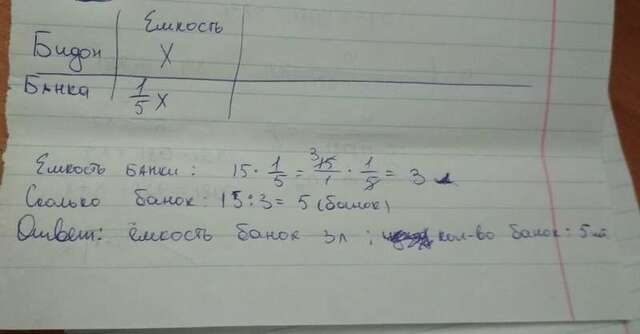 Емкость
Бидон X
Банка 1/5 X
Емкость банки: 15 · 1/5 = 15/1 · 1/5 = 3 л
Сколько банок: 15 : 3 = 5 (банок)
Ответ: ёмкость банок 3л; кол-во банок: 5